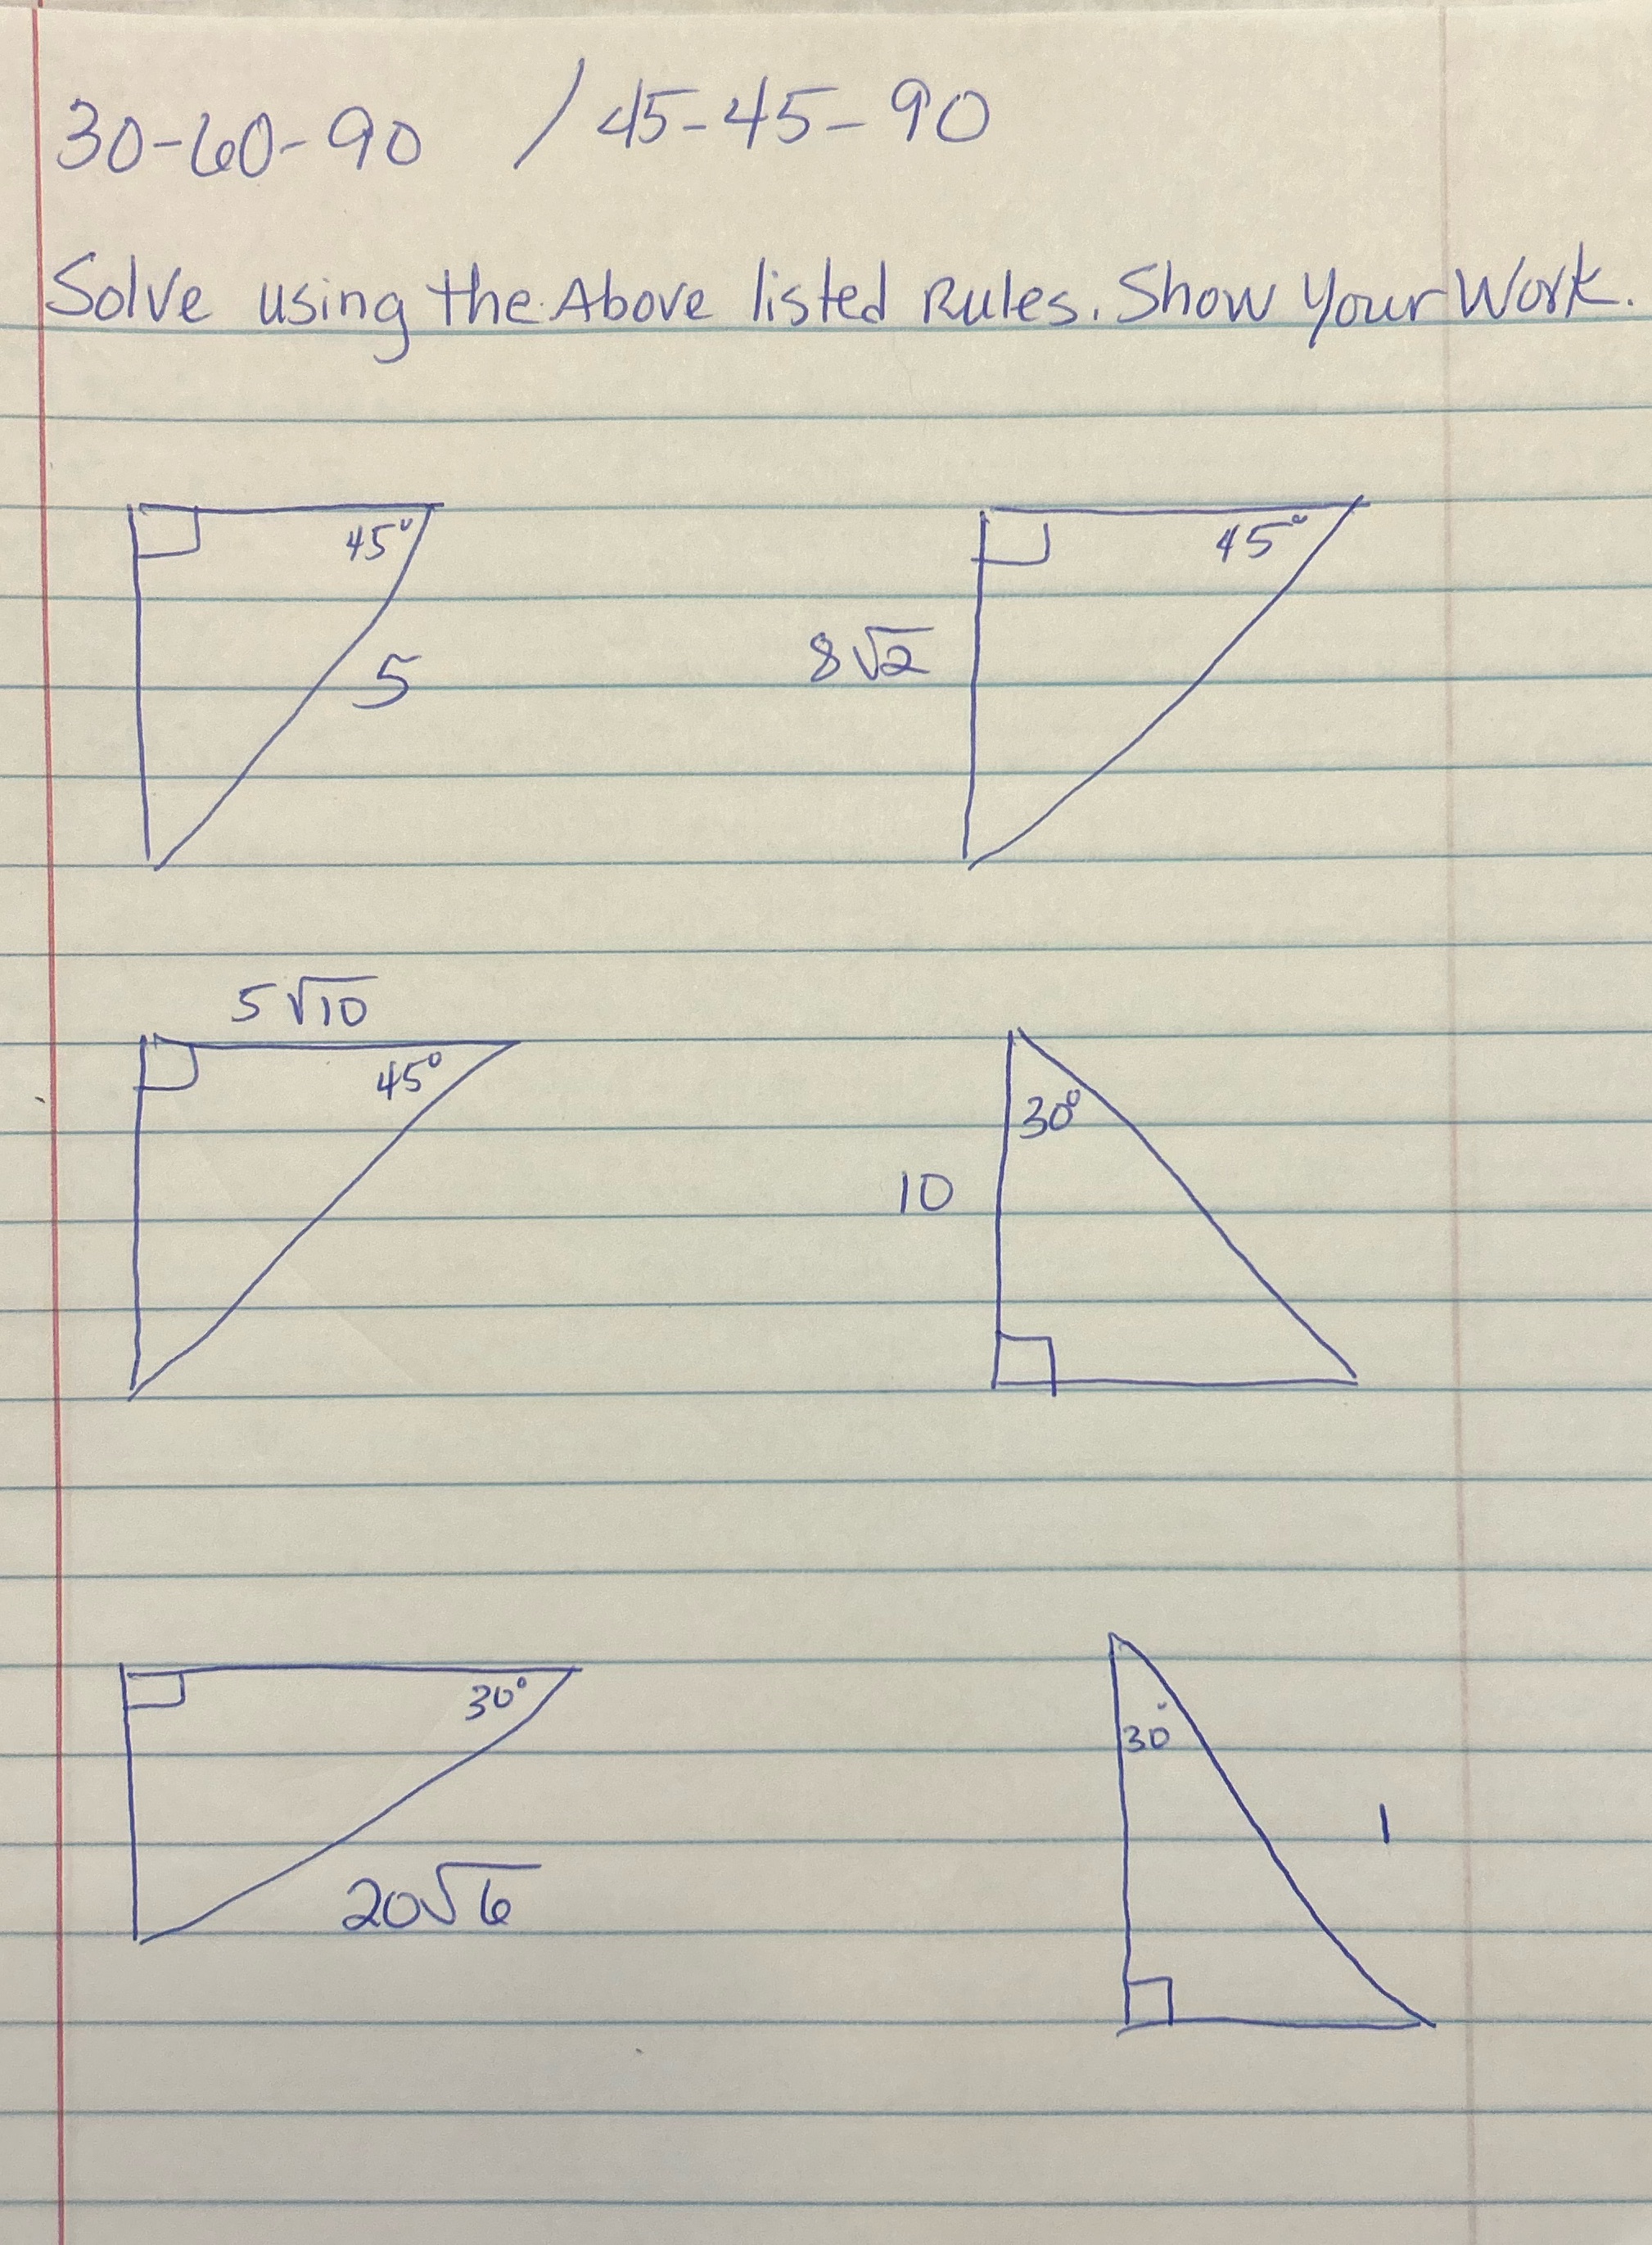 30-60-90 / 45-45-90
Solve using the Above listed Rules. Show Your Work.
45°
5
45°
8√2
5√10
45°
30°
10
30°
20√6
30°
1